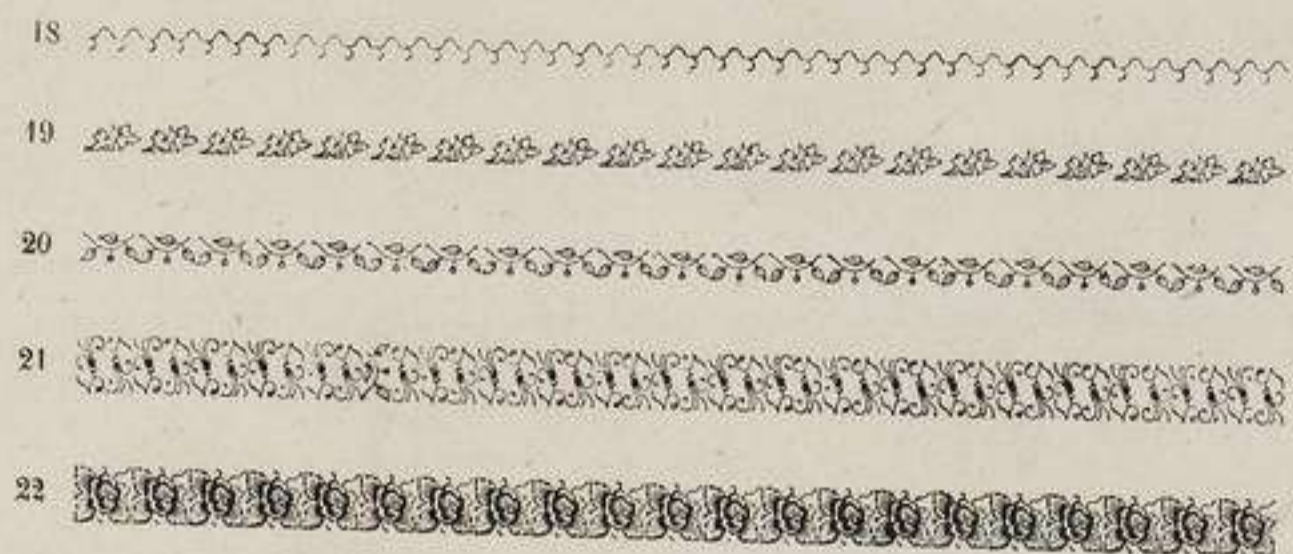 18
19
20
21
22